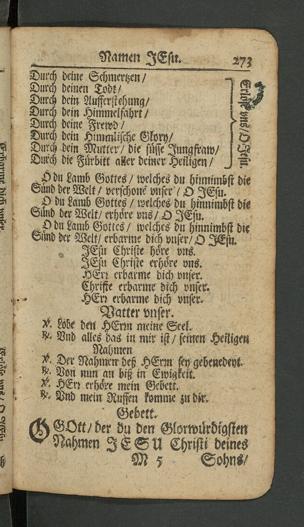 Namen JEsu. 273
Durch deine Schmertzen /
Durch deinen Todt /
Durch dein Aufferstehung /
Durch dein Himmelfahrt /
Durch deine Frewd /
Durch dein Himmlische Glory /
Durch dein Mutter / die süsse Jungfraw /
Durch die Fürbitt aller deiner Heiligen /
Erlöse vns / O JEsu.
O du Lamb Gottes / welches du hinnimbst die
Sünd der Welt / verschone vnser / O JEsu.
O du Lamb Gottes / welches du hinnimbst die
Sünd der Welt / erhöre vns / O JEsu.
O du Lamb Gottes / welches du hinnimbst die
Sünd der Welt / erbarme dich vnser / O JEsu.
JEsu Christe höre vns.
JEsu Christe erhöre vns.
HErr erbarme dich vnser.
Christe erbarme dich vnser.
HErr erbarme dich vnser.
Vatter vnser.
℣. Lobe den HErrn meine Seel.
℟. Vnd alles das in mir ist / seinen Heiligen
Nahmen
℣. Der Nahmen deß HErrn sey gebenedeyt.
℟. Von nun an biß in Ewigkeit.
℣. HErr erhöre mein Gebett.
℟. Vnd mein Ruffen komme zu dir.
Gebett.
O GOtt / der du den Glorwürdigsten
Nahmen JESU Christi deines
M 5 Sohns /